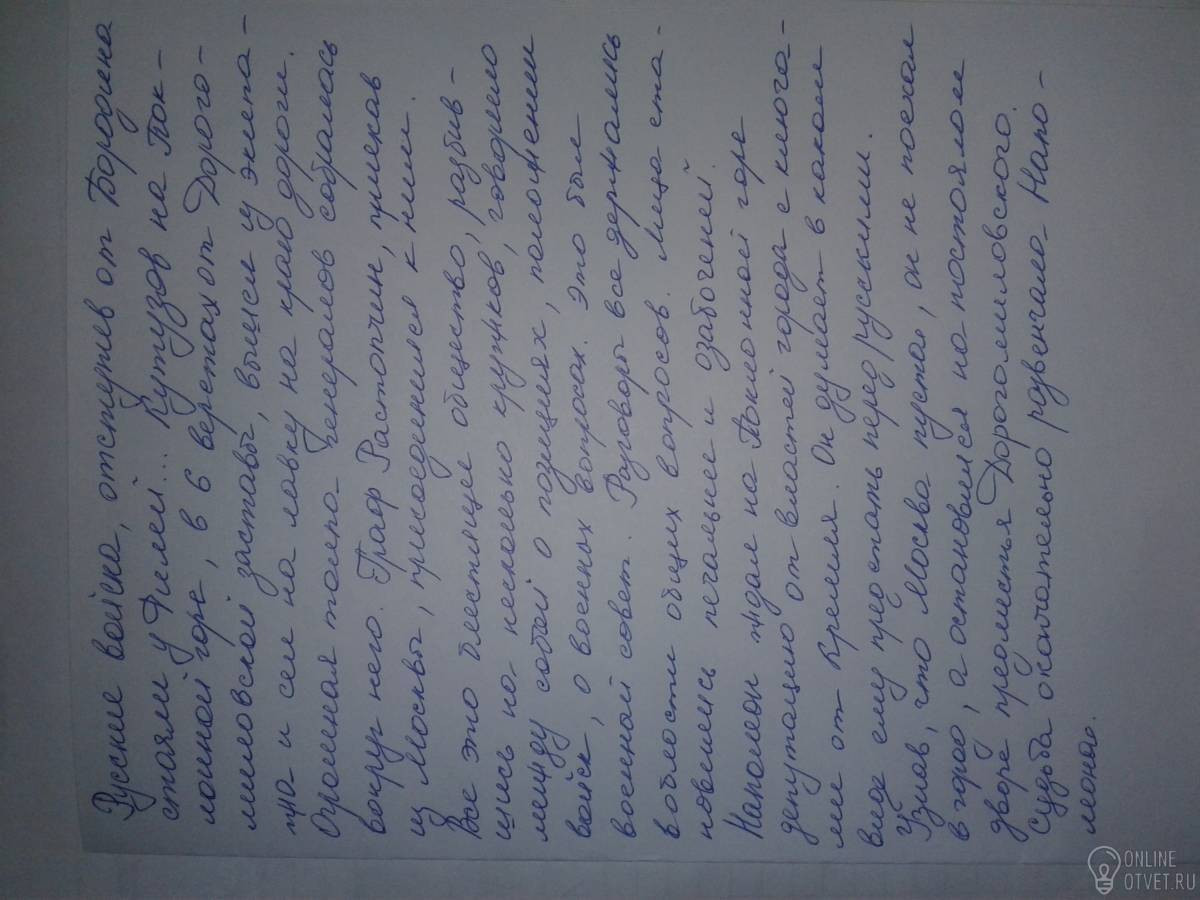 Русские войска, отступив от Бородина
стояли у Филей... Кутузов на Пок-
лонной горе, в 6 верстах от Дорого-
миловской заставы, вышел из экипа-
жа и сел на лавку на краю дороги.
Огромная толпа генералов собралась
вокруг него. Граф Растопчин, приехав
из Москвы, присоединился к ним.
Все это блестящее общество, разбив-
шись на несколько кружков, говорило
между собой о позициях, положении
войск, о военных вопросах. Это был
военный совет. Разговоры все держались
в области общих вопросов. Лица ста-
новились печальнее и озабоченней.
Наполеон ждал на Поклонной горе
депутацию от властей города с ключа-
ми от Кремля. Он думает в каком
виде ему предстать перед русскими.
Узнав, что Москва пустая, он не поехал
в город, а остановился на постоялом
дворе предместья Дорогомиловского.
Судьба окончательно развенчала Напо-
леона.
ONLINE
OTVET.RU